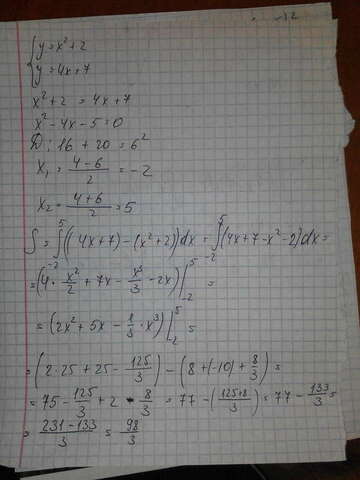 { y = x² + 2
{ y = 4x + 7
x² + 2 = 4x + 7
x² - 4x - 5 = 0
D: 16 + 20 = 6²
x₁ = (4 - 6)/2 = -2
x₂ = (4 + 6)/2 = 5
S = ∫₋₂⁵ ((4x + 7) - (x² + 2))dx = ∫₋₂⁵ (4x + 7 - x² - 2)dx =
= (4 · x²/2 + 7x - x³/3 - 2x)|₋₂⁵ =
= (2x² + 5x - 1/3 · x³)|₋₂⁵ =
= (2 · 25 + 25 - 125/3) - (8 + (-10) + 8/3) =
= 75 - 125/3 + 2 - 8/3 = 77 - (125 + 8)/3) = 77 - 133/3 =
= (231 - 133)/3 = 98/3